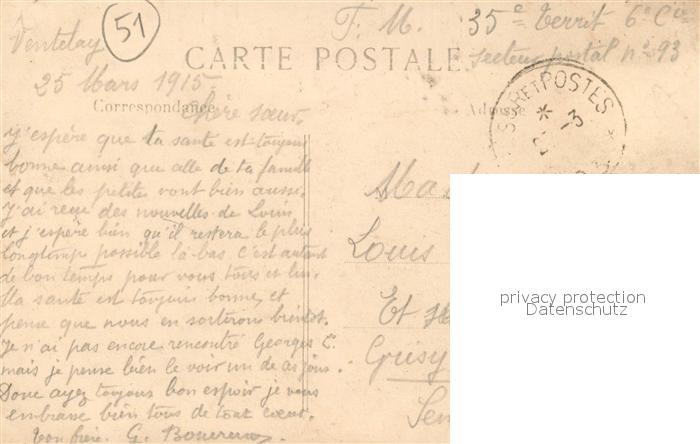 Ventelay
51
F. M. 35e Territ 6e Cie
CARTE POSTALE
secteur postal n° 93
25 Mars 1915.
Correspondance
Adresse
Chère sœur,
J'espère que ta santé est toujours
bonne ainsi que celle de ta famille
et que les petites vont bien aussi.
J'ai reçu des nouvelles de Louis
et j'espère bien qu'il restera le plus
longtemps possible là-bas c'est autant
de bon temps pour vous tous et lui.
Ma santé est toujours bonne, et
pense que nous en sortirons bientôt.
Je n'ai pas encore rencontré Georges C.
mais je pense bien le voir un de ces jours.
Donc ayez toujours bon espoir je vous
embrasse bien tous de tout cœur.
Ton frère. G.
ET POSTES
Mad
Louis
Et
Grisy
privacy protection
Datenschutz